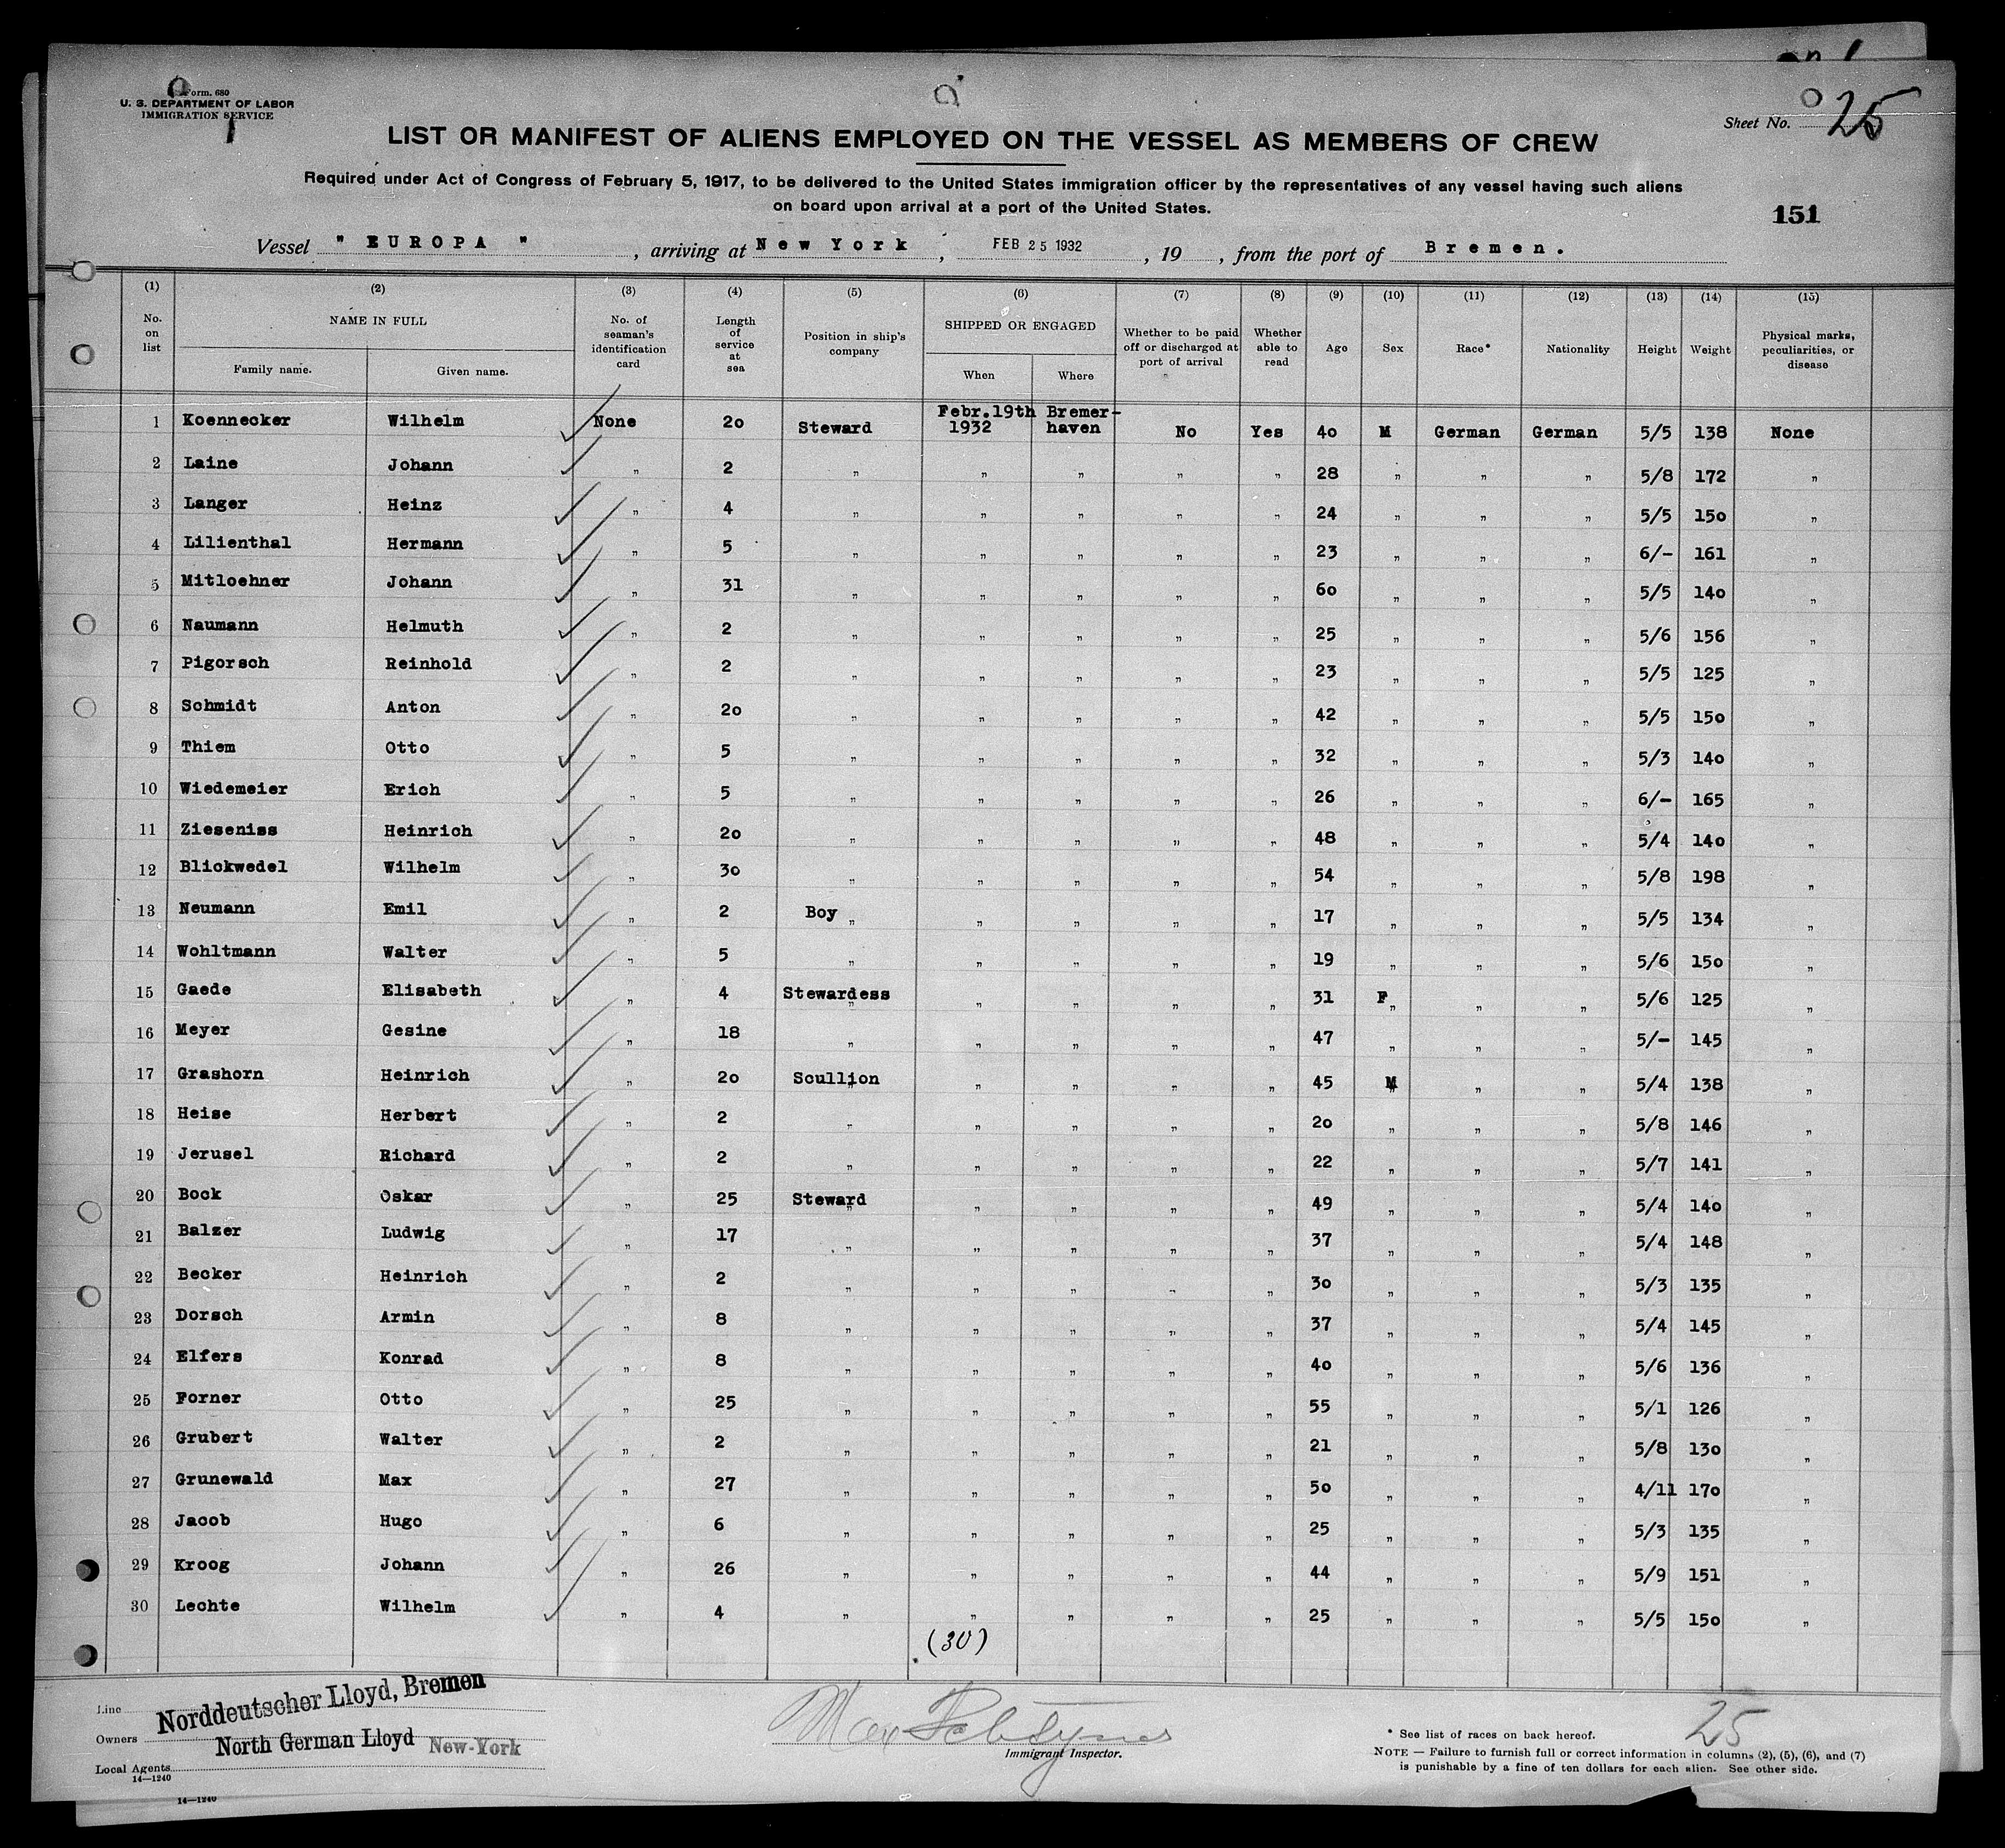 Form. 680
U. S. DEPARTMENT OF LABOR
IMMIGRATION SERVICE
Sheet No. 25
LIST OR MANIFEST OF ALIENS EMPLOYED ON THE VESSEL AS MEMBERS OF CREW
Required under Act of Congress of February 5, 1917, to be delivered to the United States immigration officer by the representatives of any vessel having such aliens
on board upon arrival at a port of the United States.
151
Vessel " EUROPA ", arriving at New York, FEB 25 1932, 19 , from the port of Bremen.
(1) (2) (3) (4) (5) (6) (7) (8) (9) (10) (11) (12) (13) (14) (15)
No. on list NAME IN FULL Family name. Given name. No. of seaman's identification card Length of service at sea Position in ship's company SHIPPED OR ENGAGED When Where Whether to be paid off or discharged at port of arrival Whether able to read Age Sex Race* Nationality Height Weight Physical marks, peculiarities, or disease
1 Koennecker Wilhelm None 20 Steward Febr.19th 1932 Bremer-haven No Yes 40 M German German 5/5 138 None
2 Laine Johann " 2 " " " " " 28 " " " 5/8 172 "
3 Langer Heinz " 4 " " " " " 24 " " " 5/5 150 "
4 Lilienthal Hermann " 5 " " " " " 23 " " " 6/- 161 "
5 Mitloehner Johann " 31 " " " " " 60 " " " 5/5 140 "
6 Naumann Helmuth " 2 " " " " " 25 " " " 5/6 156 "
7 Pigorsch Reinhold " 2 " " " " " 23 " " " 5/5 125 "
8 Schmidt Anton " 20 " " " " " 42 " " " 5/5 150 "
9 Thiem Otto " 5 " " " " " 32 " " " 5/3 140 "
10 Wiedemeier Erich " 5 " " " " " 26 " " " 6/- 165 "
11 Zieseniss Heinrich " 20 " " " " " 48 " " " 5/4 140 "
12 Blickwedel Wilhelm " 30 " " " " " 54 " " " 5/8 198 "
13 Neumann Emil " 2 Boy " " " " " 17 " " " 5/5 134 "
14 Wohltmann Walter " 5 " " " " " 19 " " " 5/6 150 "
15 Gaede Elisabeth " 4 Stewardess " " " " " 31 F " " " 5/6 125 "
16 Meyer Gesine " 18 " " " " " 47 " " " 5/- 145 "
17 Grashorn Heinrich " 20 Scullion " " " " 45 M " " 5/4 138 "
18 Heise Herbert " 2 " " " " " 20 " " " 5/8 146 "
19 Jerusel Richard " 2 " " " " " 22 " " " 5/7 141 "
20 Bock Oskar " 25 Steward " " " " " 49 " " " 5/4 140 "
21 Balzer Ludwig " 17 " " " " " 37 " " " 5/4 148 "
22 Becker Heinrich " 2 " " " " " 30 " " " 5/3 135 "
23 Dorsch Armin " 8 " " " " " 37 " " " 5/4 145 "
24 Elfers Konrad " 8 " " " " " 40 " " " 5/6 136 "
25 Forner Otto " 25 " " " " " 55 " " " 5/1 126 "
26 Grubert Walter " 2 " " " " " 21 " " " 5/8 130 "
27 Grunewald Max " 27 " " " " " 50 " " " 4/11 170 "
28 Jacob Hugo " 6 " " " " " 25 " " " 5/3 135 "
29 Kroog Johann " 26 " " " " " 44 " " " 5/9 151 "
30 Lechte Wilhelm " 4 " " " " " 25 " " " 5/5 150 "
(30)
Line Norddeutscher Lloyd, Bremen
Owners North German Lloyd New-York
Local Agents
14—1240
14—1240
Max
Immigrant Inspector.
25
* See list of races on back hereof.
NOTE — Failure to furnish full or correct information in columns (2), (5), (6), and (7)
is punishable by a fine of ten dollars for each alien. See other side.